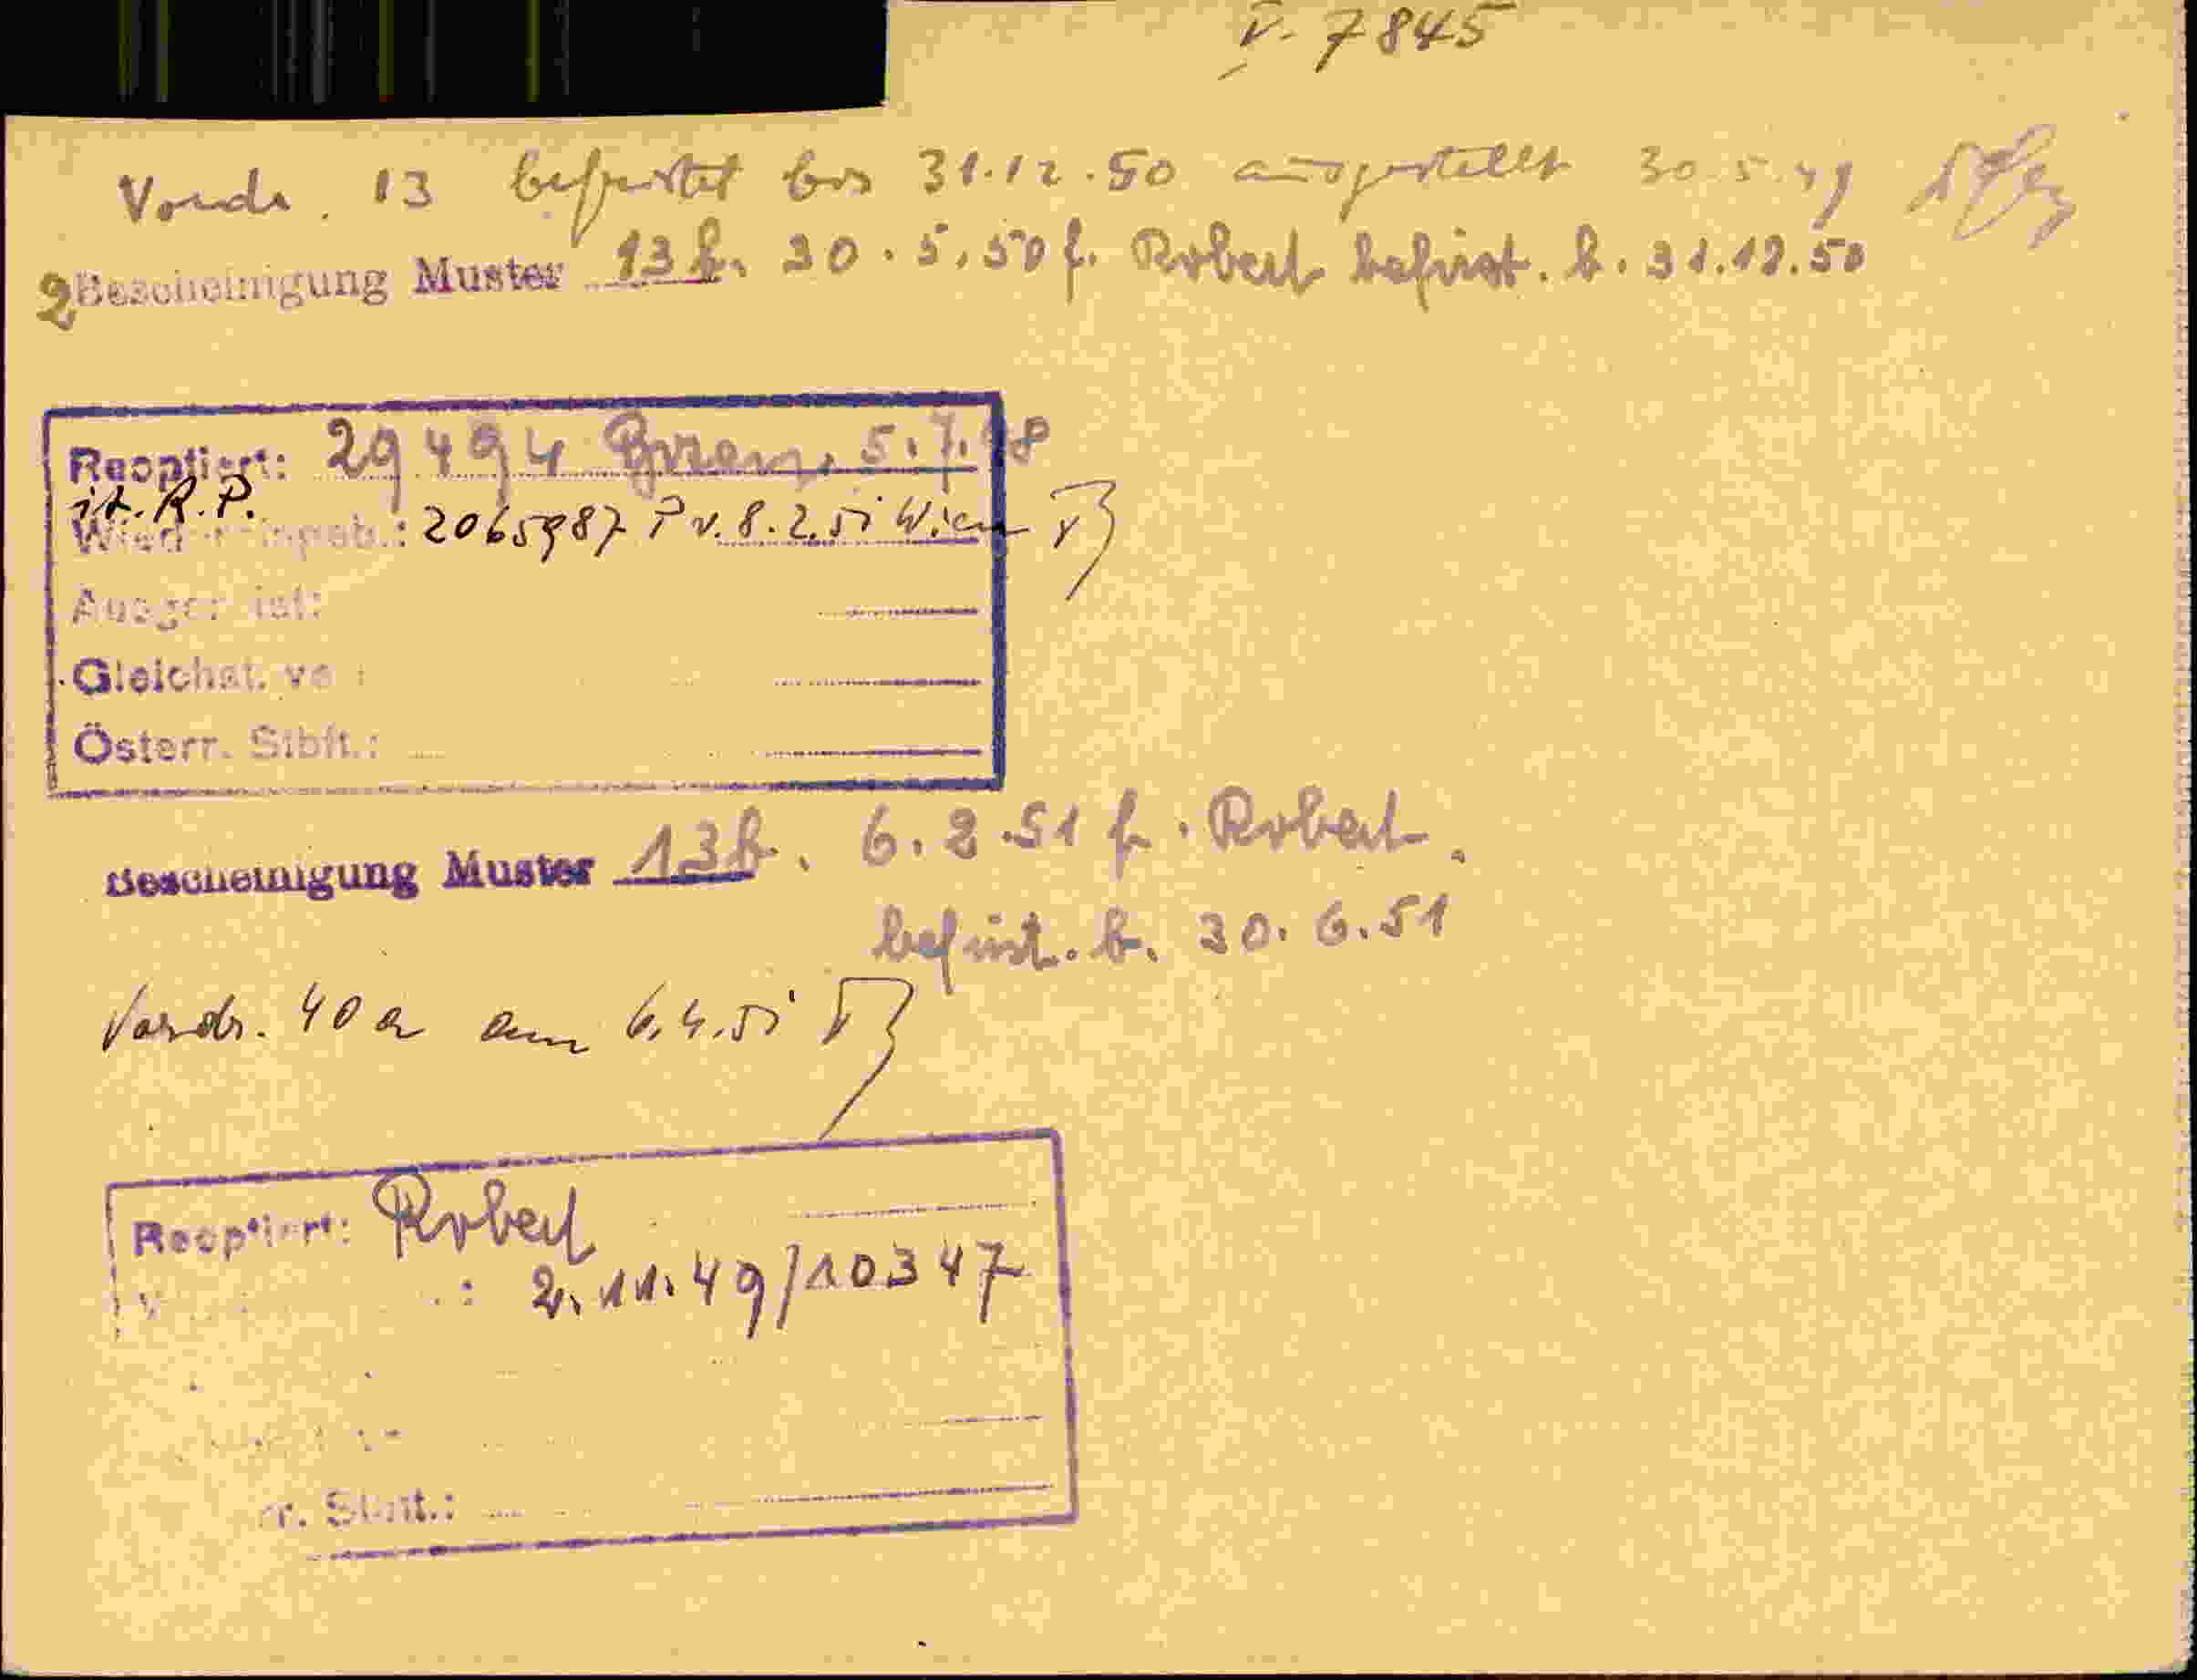 V. 7845
Vordr. 13 befristet bis 31.12.50 ausgestellt 30.5.49
2 Bescheinigung Muster 13 b. 30.5.50 f. Robert befrist. b. 31.12.50
Reoptiert: 29494 Brenn. 5.7.48
it. R.P.
Wiedereingeb.: 2065987 P v. 8.2.51 Wien
Ausger. ist:
Gleichst. ve :
Österr. Stbft.:
Bescheinigung Muster 13 b. 6.2.51 f. Robert.
befrist. b. 30.6.51
Vordr. 40 a am 6.4.51
Reoptiert: Robert
: 2.11.49/10347
rr. Stbft.: